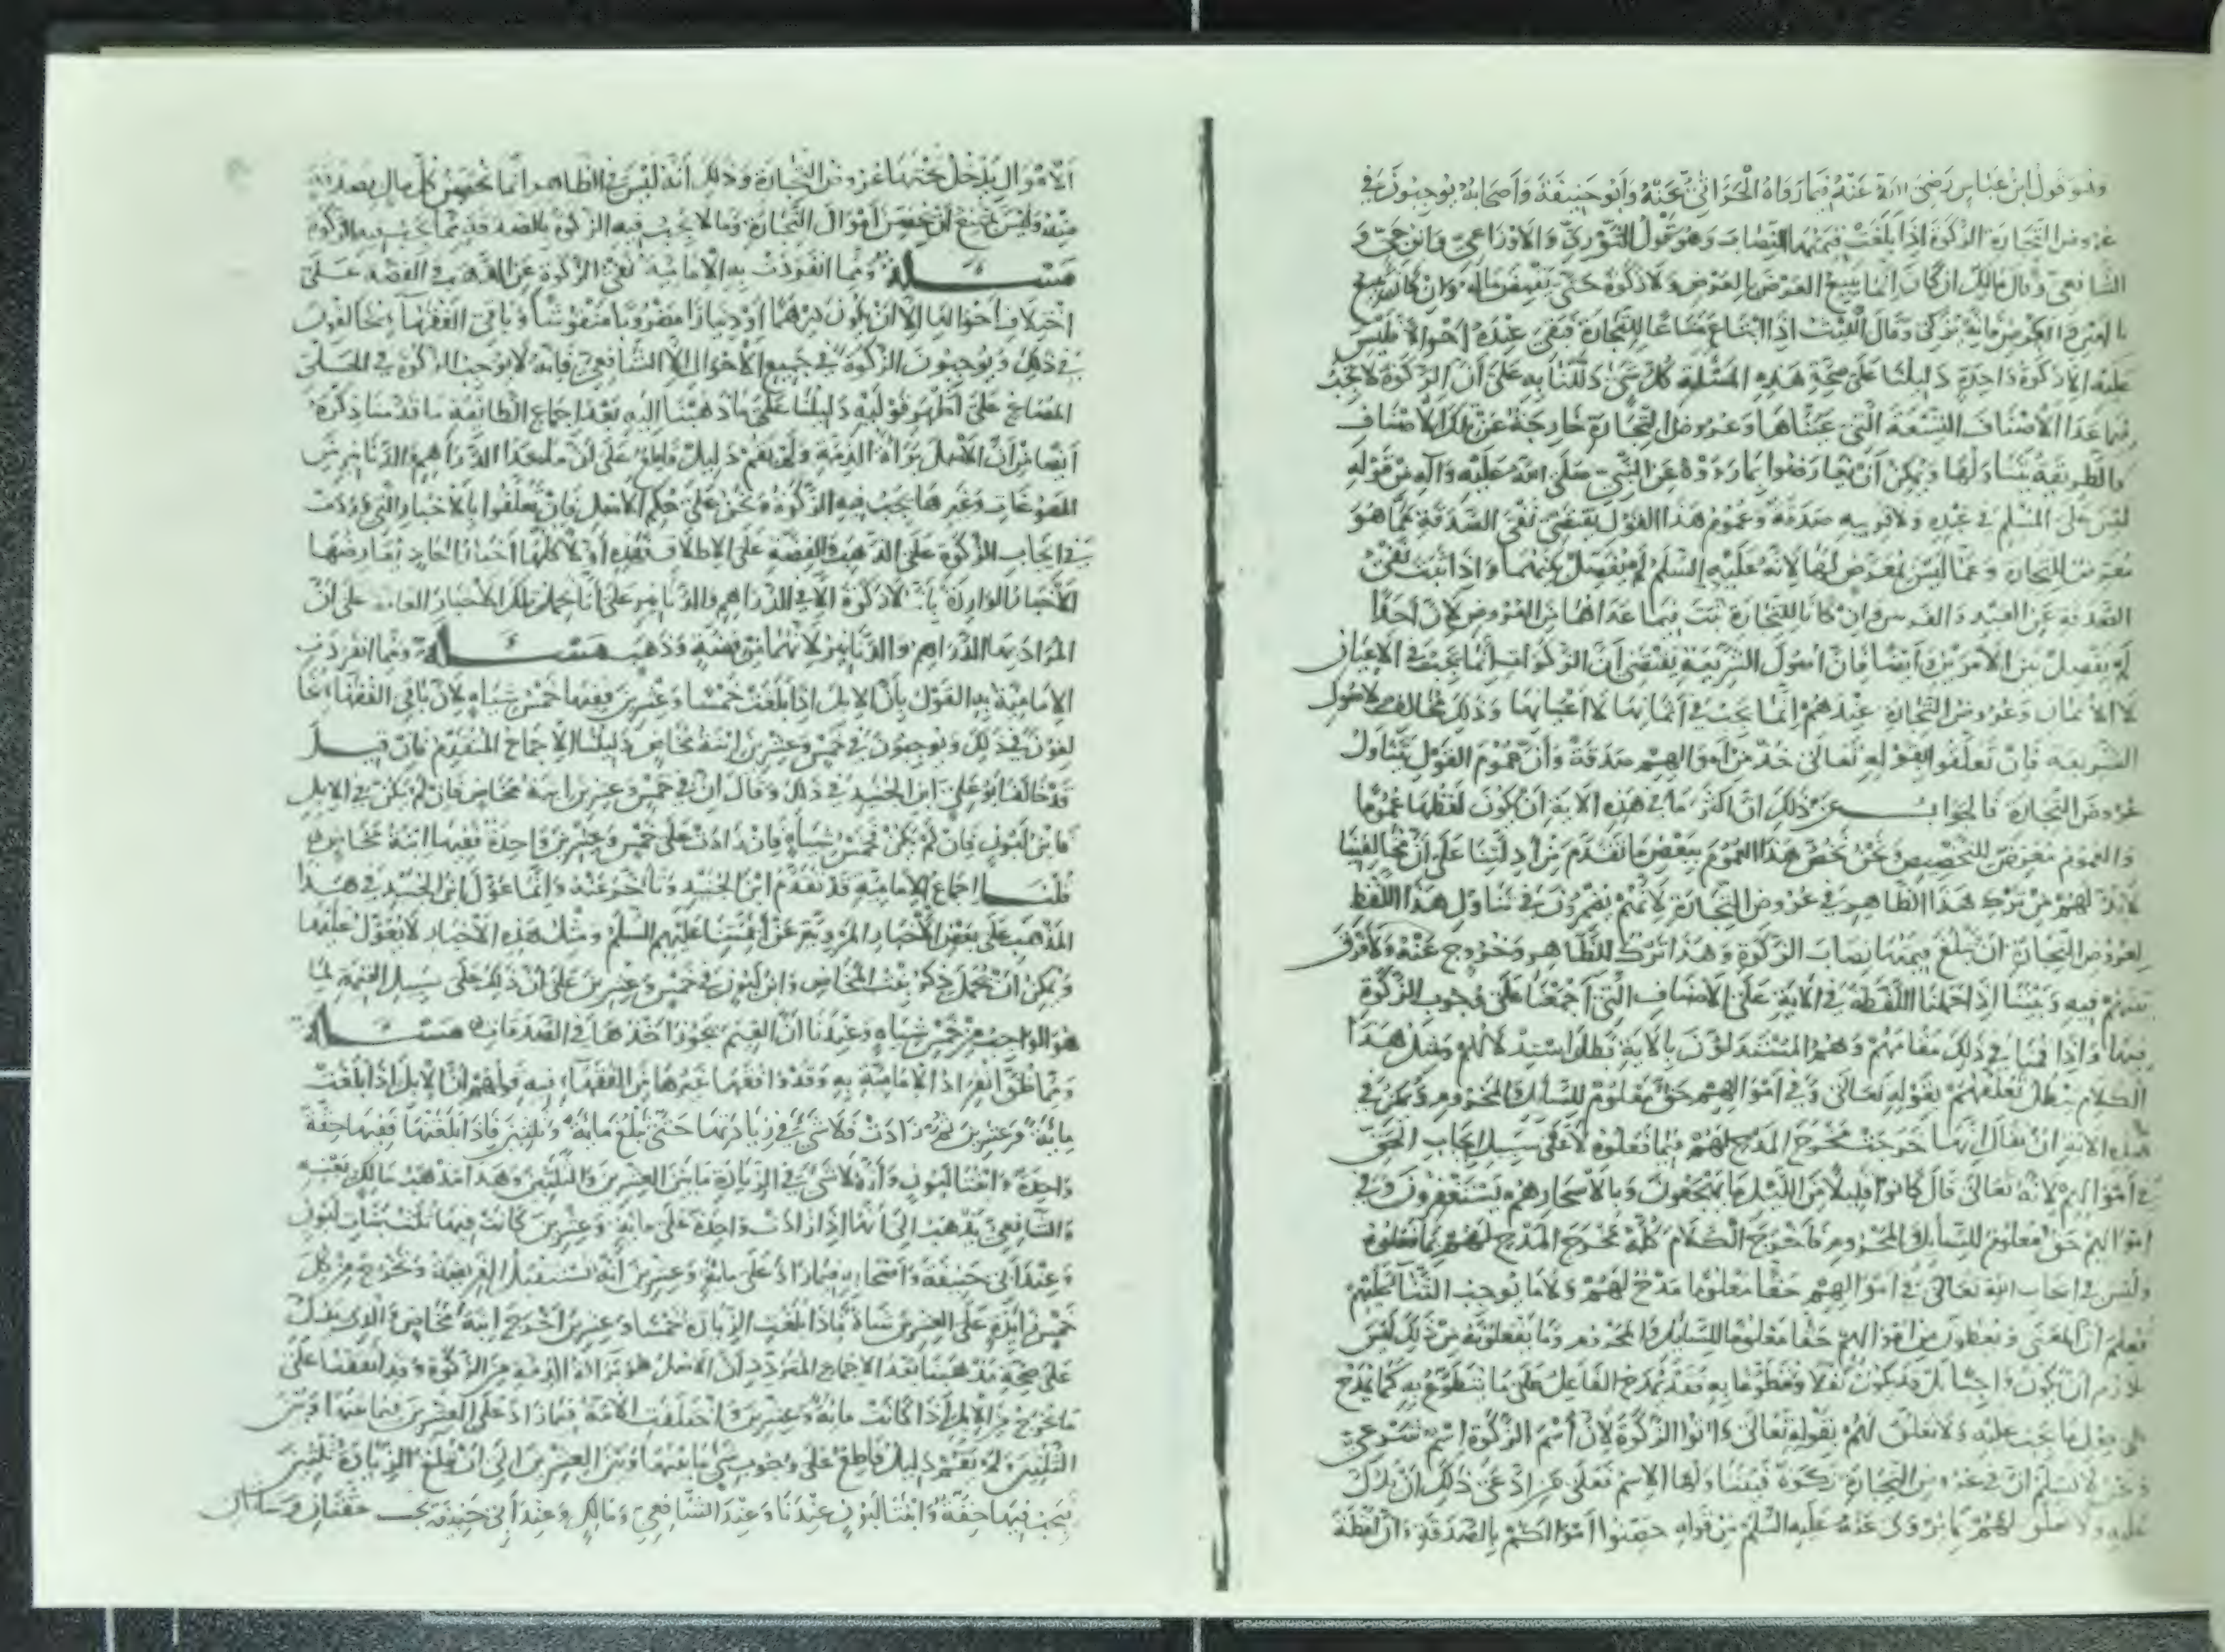 وهو قول ابن عباس رضي الله عنه فيما رواه الحراني عنه وأبو حنيفة وأصحابه يوجبون في
عروض التجارة الزكوة إذا بلغت قيمتها النصاب وهو قول الثوري والأوزاعي وابن حي و
الشافعي وقال مالك إن كان إنما يبيع العرض بالعرض ولا زكوة حتى ماله وإن كان يبيع
يزكي وقال الليث إذا ابتاع متاعا للتجارة فبقي عنده أحوالا فليس
عليه إلا زكوة واحدة دليلنا على صحة هذه المسئلة كل شيء دللنا به على أن الزكوة لا تجب
فيما عدا الأصناف التسعة التي عيناها وعروض التجارة خارجة عن تلك الأصناف
والطريقة تتناولها ويمكن أن يعارضوا بما رووه عن النبي صلى الله عليه وآله من قوله
ليس على المسلم في عبده ولا فرسه صدقة وعموم هذا القول يقتضي نفي الصدقة عما هو
معرض للتجارة وعما ليس بمعرض لها لأنه عليه السلم لم يفصل بينهما وإذا ثبت نفي
الصدقة عن العبد والفرس وإن كانا للتجارة ثبت فيما عداهما من العروض لأن أحدا
لم يفصل بين الأمرين وأيضا فإن أصول الشريعة تقتضي أن الزكوات إنما تجب في الأعيان
لا الأثمان وعروض التجارة عندهم إنما تجب في أثمانها لا أعيانها وذلك مخالف لأصول
الشريعة فإن تعلقوا بقوله تعالى خذ من أموالهم صدقة وأن عموم القول يتناول
عروض التجارة فالجواب عن ذلك أن أكثر ما في هذه الآية أن يكون لفظها عموما
والعموم معرض للتخصيص ونحن نخص هذا العموم ببعض ما تقدم من أدلتنا على أن مخالفينا
لا بد لهم من ترك هذا الظاهر في عروض التجارة لأنهم يضمرون في تناول هذا اللفظ
لعروض التجارة أن تبلغ قيمتها نصاب الزكوة وهذا ترك للظاهر وخروج عنه ولا فرق
بينهم فيه وبيننا إذا حملنا اللفظة في الآية على الأصناف التي أجمعنا على وجوب الزكوة
فيها وإذا قمنا في ذلك مقامهم وهم المستدلون بالآية بطل استدلالهم ومثل هذا
الكلام يبطل تعلقهم بقوله تعالى وفي أموالهم حق معلوم للسائل والمحروم ويمكن في
هذه الآية أن يقال إنها خرجت مخرج المدح لهم فيما فعلوه لا على سبيل إيجاب الحق
في أموالهم لأنه تعالى قال كانوا قليلا من الليل ما يهجعون وبالأسحار هم يستغفرون وفي
أموالهم حق معلوم للسائل والمحروم فأخرج الكلام كله مخرج المدح لهم بما فعلوه
وليس في إيجاب الله تعالى في أموالهم حقا معلوما مدح لهم ولا ما يوجب الثناء عليهم
فعلم أن المعنى ويعطون من أموالهم حقا معلوما للسائل والمحروم وما يفعلونه من ذلك ليس
بلازم أن يكون واجبا بل قد يكون نفلا وتطوعا به فقد يمدح الفاعل على ما يتطوع به كما يمدح
على فعل ما يجب عليه ولا تعلق لهم بقوله تعالى وآتوا الزكوة لأن اسم الزكوة اسم شرعي
ونحن لا نسلم أن في عروض التجارة زكوة فيتناولها الاسم فعلى من ادعى ذلك أن يدل
عليه ولا تعلق لهم بما يروى عنه عليه السلم من قوله حصنوا أموالكم بالصدقة وأن لفظة
الأموال يدخل تحتها عروض التجارة وذلك أنه ليس في الظاهر إنما تحصن كل مال بصدقة
منه وليس يمتنع أن نحصن أموال التجارة وما لا يجب فيه الزكوة بالصدقة مما يجب فيه الزكوة
مسئلة ومما انفردت به الإمامية نفي الزكوة عن الذهب والفضة على
اختلاف أحوالها إلا أن يكون درهما أو دينارا مضروبا منقوشا وباقي الفقهاء يخالفون
في ذلك ويوجبون الزكوة في جميع الأحوال إلا الشافعي فإنه لا يوجب الزكوة في الحلى
المصاغ على أظهر قوليه دليلنا على ما ذهبنا إليه بعد إجماع الطائفة ما قدمنا ذكره
أيضا من أن الأصل براءة الذمة ولم يقم دليل قاطع على أن ما عدا الدراهم والدنانير من
المصوغات وغيرها يجب فيه الزكوة ونحن على حكم الأصل فإن تعلقوا بالأخبار التي وردت
في إيجاب الزكوة على الذهب والفضة على الإطلاق فهذه أولا كلها أخبار آحاد يعارضها
الأخبار الواردة بأنه لا زكوة إلا في الدراهم والدنانير على أنا نحمل تلك الأخبار العامة على أن
المراد بها الدراهم والدنانير لأنهما من فضة وذهب مسئلة ومما انفردت
الإمامية به القول بأن الإبل إذا بلغت خمسا وعشرين ففيها خمس شياه لأن باقي الفقهاء يخا
لفون في ذلك ويوجبون في خمس وعشرين ابنة مخاض دليلنا الإجماع المتقدم فإن قيل
قد خالف أبو علي ابن الجنيد في ذلك وقال إن في خمس وعشرين ابنة مخاض فإن لم تكن في الإبل
فابن لبون فإن لم يكن فخمس شياه فإن زادت على خمس وعشرين واحدة ففيها ابنة مخاض
قلنا إجماع الإمامية قد تقدم ابن الجنيد وتأخر عنه وإنما عول ابن الجنيد في هذا
المذهب على بعض الأخبار المروية عن أئمتنا عليهم السلم ومثل هذه الأخبار لا يعول عليها
ويمكن أن نحمل ذكر بنت المخاض وابن لبون في خمس وعشرين على أن ذلك على سبيل القيمة لما
هو الواجب من خمس شياه وعندنا أن القيم يجوز أخذها في الصدقات مسئلة
ومما ظن انفراد الإمامية به وقد وافقها غيرها من الفقهاء فيه قولهم إن الإبل إذا بلغت
مائة وعشرين ثم زادت فلا شيء في زيادتها حتى تبلغ مائة وثلثين فإذا بلغتها ففيها حقة
واحدة وابنتا لبون وأنه لا شيء في الزيادة ما بين العشرين والثلثين وهذا مذهب مالك بعينه
والشافعي يذهب إلى أنها إذا زادت واحدة على مائة وعشرين كانت فيها ثلث بنات لبون
وعند أبي حنيفة وأصحابه فيما زاد على مائة وعشرين أنه تستقبل الفريضة ويخرج من كل
خمس زائدة على العشرين شاة فإذا بلغت الزيادة خمسا وعشرين أخرج ابنة مخاض والذي يدل
على صحة مذهبنا بعد الإجماع المتردد أن الأصل هو براءة الذمة من الزكوة وقد اتفقنا على
ما يخرج من الإبل إذا كانت مائة وعشرين واختلفت الأمة فيما زاد على العشرين فيما بينها وبين
الثلثين ولم يقم دليل قاطع على وجوب شيء ما بينها وبين العشرين إلى أن تبلغ الزيادة ثلثين
فيجب فيها حقة وابنتا لبون عندنا وعند الشافعي ومالك وعند أبي حنيفة يجب حقتان وشاتان